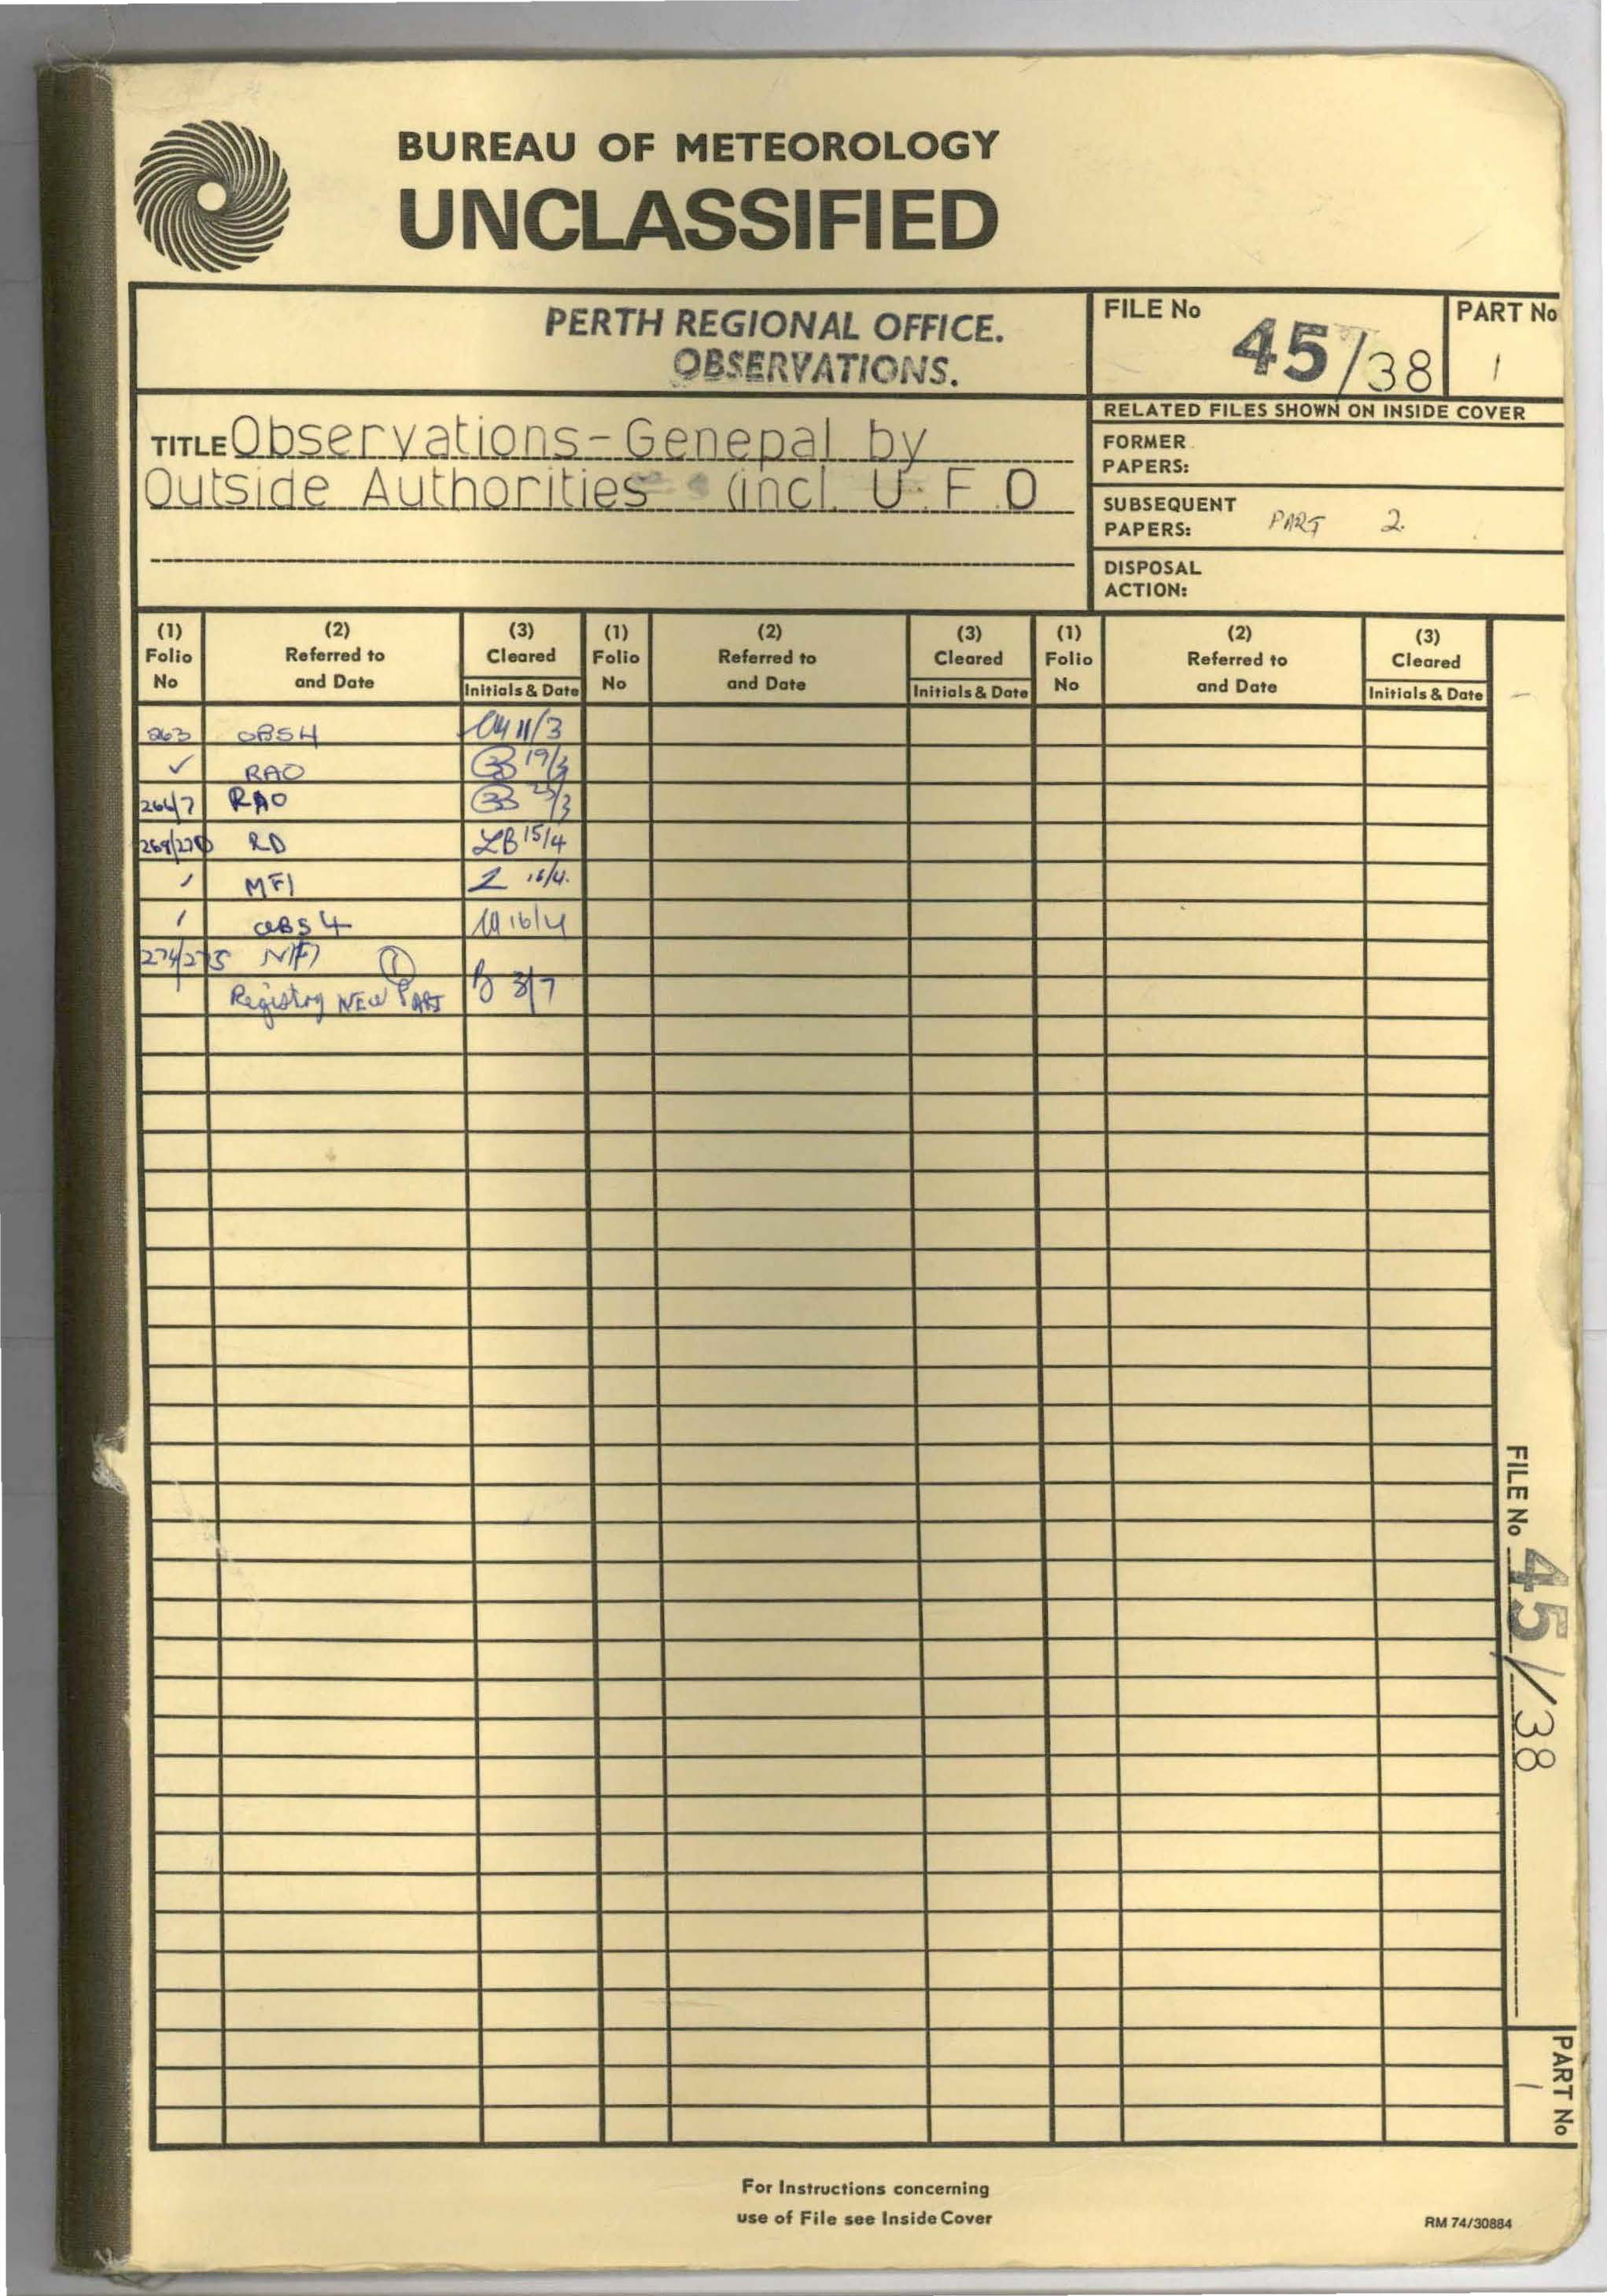 BUREAU OF METEOROLOGY
UNCLASSIFIED
PERTH REGIONAL OFFICE.
OBSERVATIONS.
FILE No 45/38
PART No 1
TITLE Observations - Genepal by
Outside Authorities (incl. U.F.O
RELATED FILES SHOWN ON INSIDE COVER
FORMER
PAPERS:
SUBSEQUENT
PAPERS: PART 2.
DISPOSAL
ACTION:
(1) (2) (3) (1) (2) (3) (1) (2) (3)
Folio Referred to Cleared Folio Referred to Cleared Folio Referred to Cleared
No and Date Initials & Date No and Date Initials & Date No and Date Initials & Date
263 OBS4 11/3
✓ RAO 19/3
266/7 RAO 25/3
269/270 RD LB 15/4
MFI 16/4.
OBS 4 16/4
274/275
Registry NEW PART B 3/7
FILE No 45/38
PART No 1
For Instructions concerning
use of File see Inside Cover
RM 74/30884